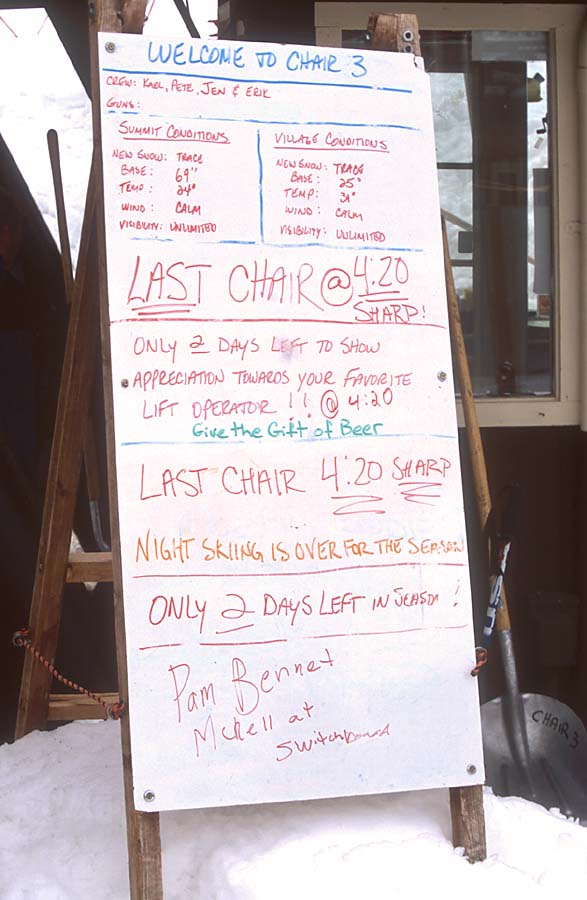 WELCOME TO CHAIR 3
CREW: KARL, PETE, JEN & ERIK
GUNS:
SUMMIT CONDITIONS
NEW SNOW: TRACE
BASE: 69"
TEMP: 24°
WIND: CALM
VISIBILITY: UNLIMITED
VILLAGE CONDITIONS
NEW SNOW: TRACE
BASE: 25"
TEMP: 31°
WIND: CALM
VISIBILITY: UNLIMITED
LAST CHAIR @ 4:20
SHARP!
ONLY 2 DAYS LEFT TO SHOW
APPRECIATION TOWARDS YOUR FAVORITE
LIFT OPERATOR !! @ 4:20
Give the Gift of Beer
LAST CHAIR 4:20 SHARP
NIGHT SKIING IS OVER FOR THE SEASON
ONLY 2 DAYS LEFT IN SEASON !
Pam Bennet
at
Switchboard
CHAIR 3